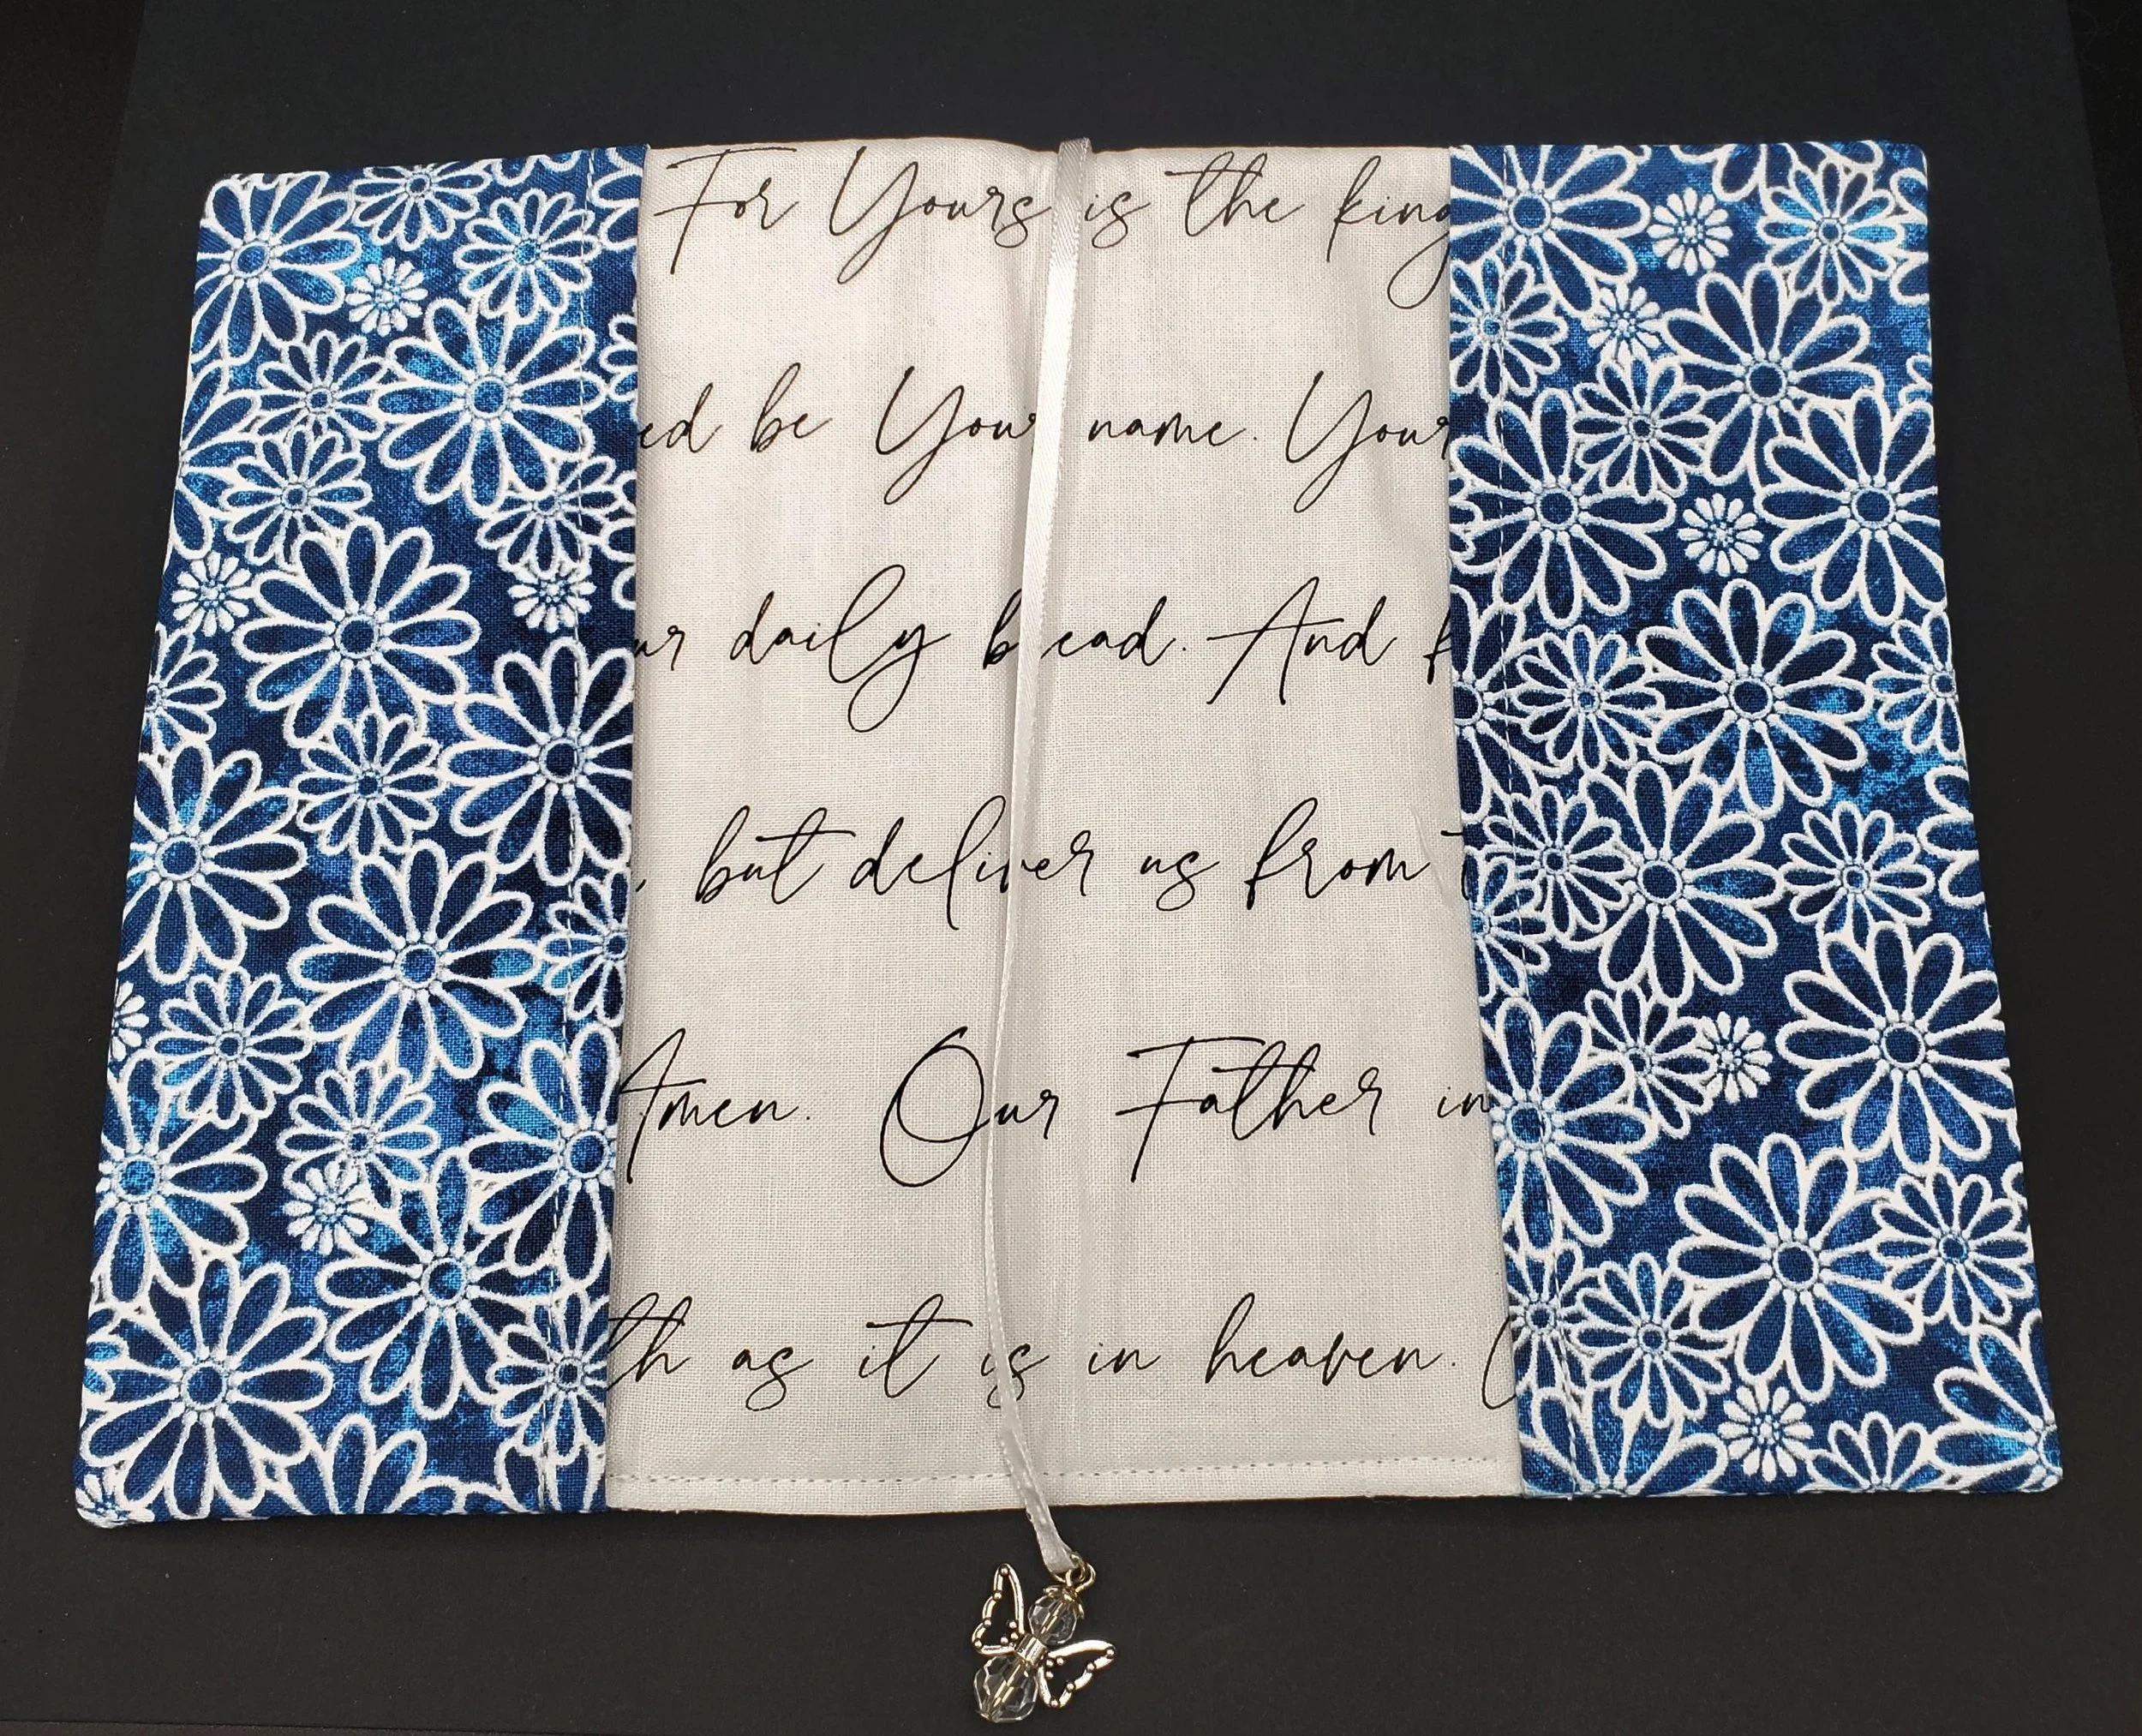 For Yours is the king
ed be Your name. Your
ur daily bread. And f
, but deliver us from t
Amen. Our Father in
th as it is in heaven.